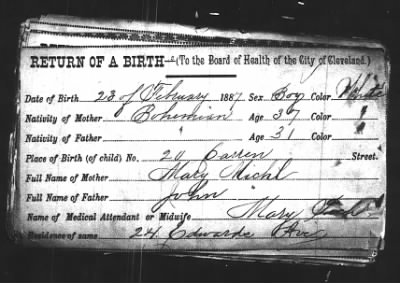 RETURN OF A BIRTH (To the Board of Health of the City of Cleveland.)
Date of Birth 23 of February 1887 Sex Boy Color White
Nativity of Mother Bohemian Age 37 Color "
Nativity of Father " Age 31 Color "
Place of Birth (of child) No. 20 Carren Street.
Full Name of Mother Mary Michl
Full Name of Father John "
Name of Medical Attendant or Midwife Mary
Residence of same 24 Edwards Ave